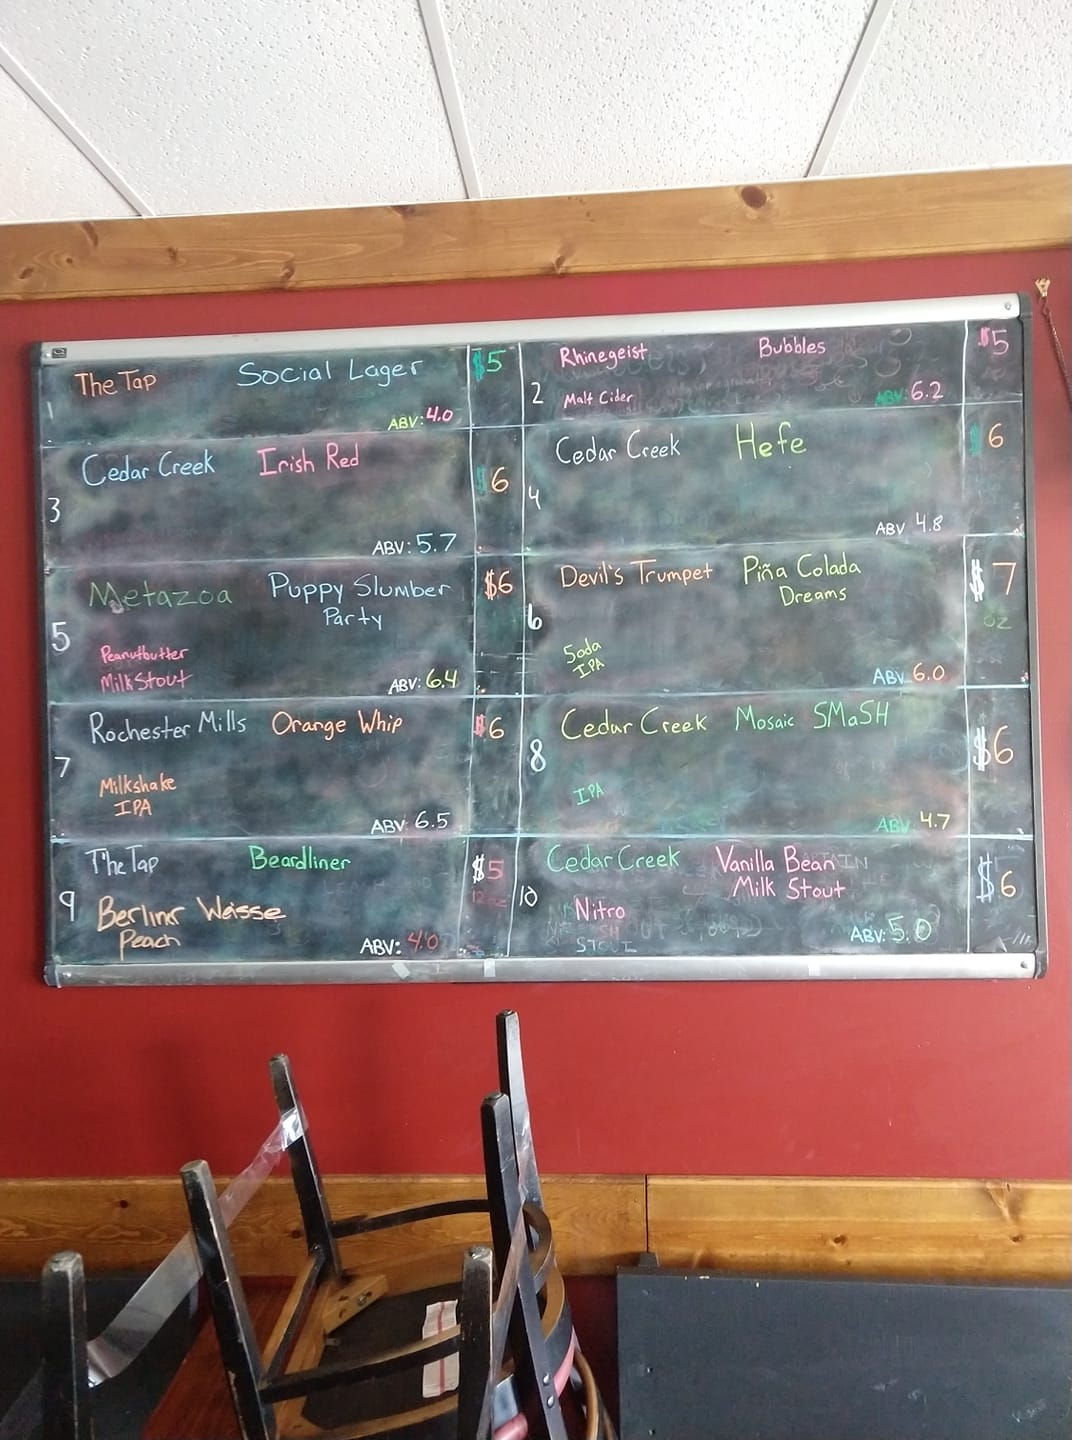 1 The Tap Social Lager $5
ABV: 4.0
2 Rhinegeist Bubbles $5
Malt Cider ABV: 6.2
3 Cedar Creek Irish Red $6
ABV: 5.7
4 Cedar Creek Hefe $6
ABV 4.8
5 Metazoa Puppy Slumber $6
Party
Peanutbutter
Milk Stout ABV: 6.4
6 Devil's Trumpet Piña Colada $7
Dreams
OZ
Soda
IPA
ABV 6.0
7 Rochester Mills Orange Whip $6
Milkshake
IPA
ABV: 6.5
8 Cedar Creek Mosaic SMaSH $6
IPA
ABV 4.7
9 The Tap Beardliner $5
12oz
Berlinr Weisse
Peach ABV: 4.0
10 Cedar Creek Vanilla Bean $6
Milk Stout
Nitro
ABV: 5.0